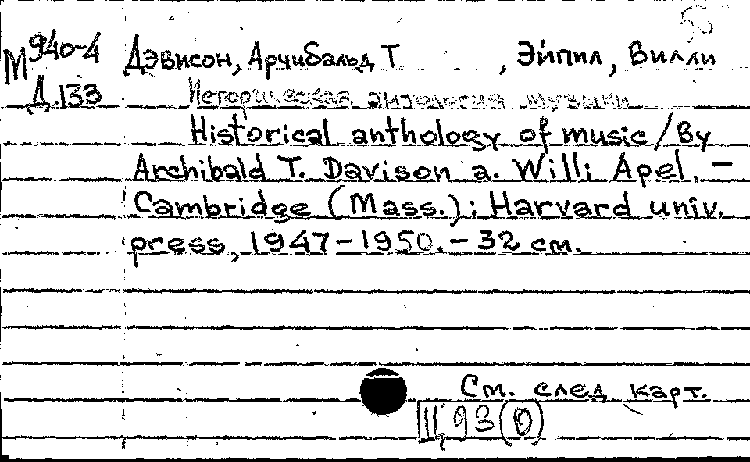 М 940-4 Дэвисон, Арчибальд Т , Эйпил, Вилли
Д. 133 Историческая антология музыки
Historical anthology of music / By
Archibald T. Davison a. Willi Apel. –
Cambridge (Mass.): Harvard univ.
press, 1947–1950. – 32 см.
См. след. карт.
Щ93(0)